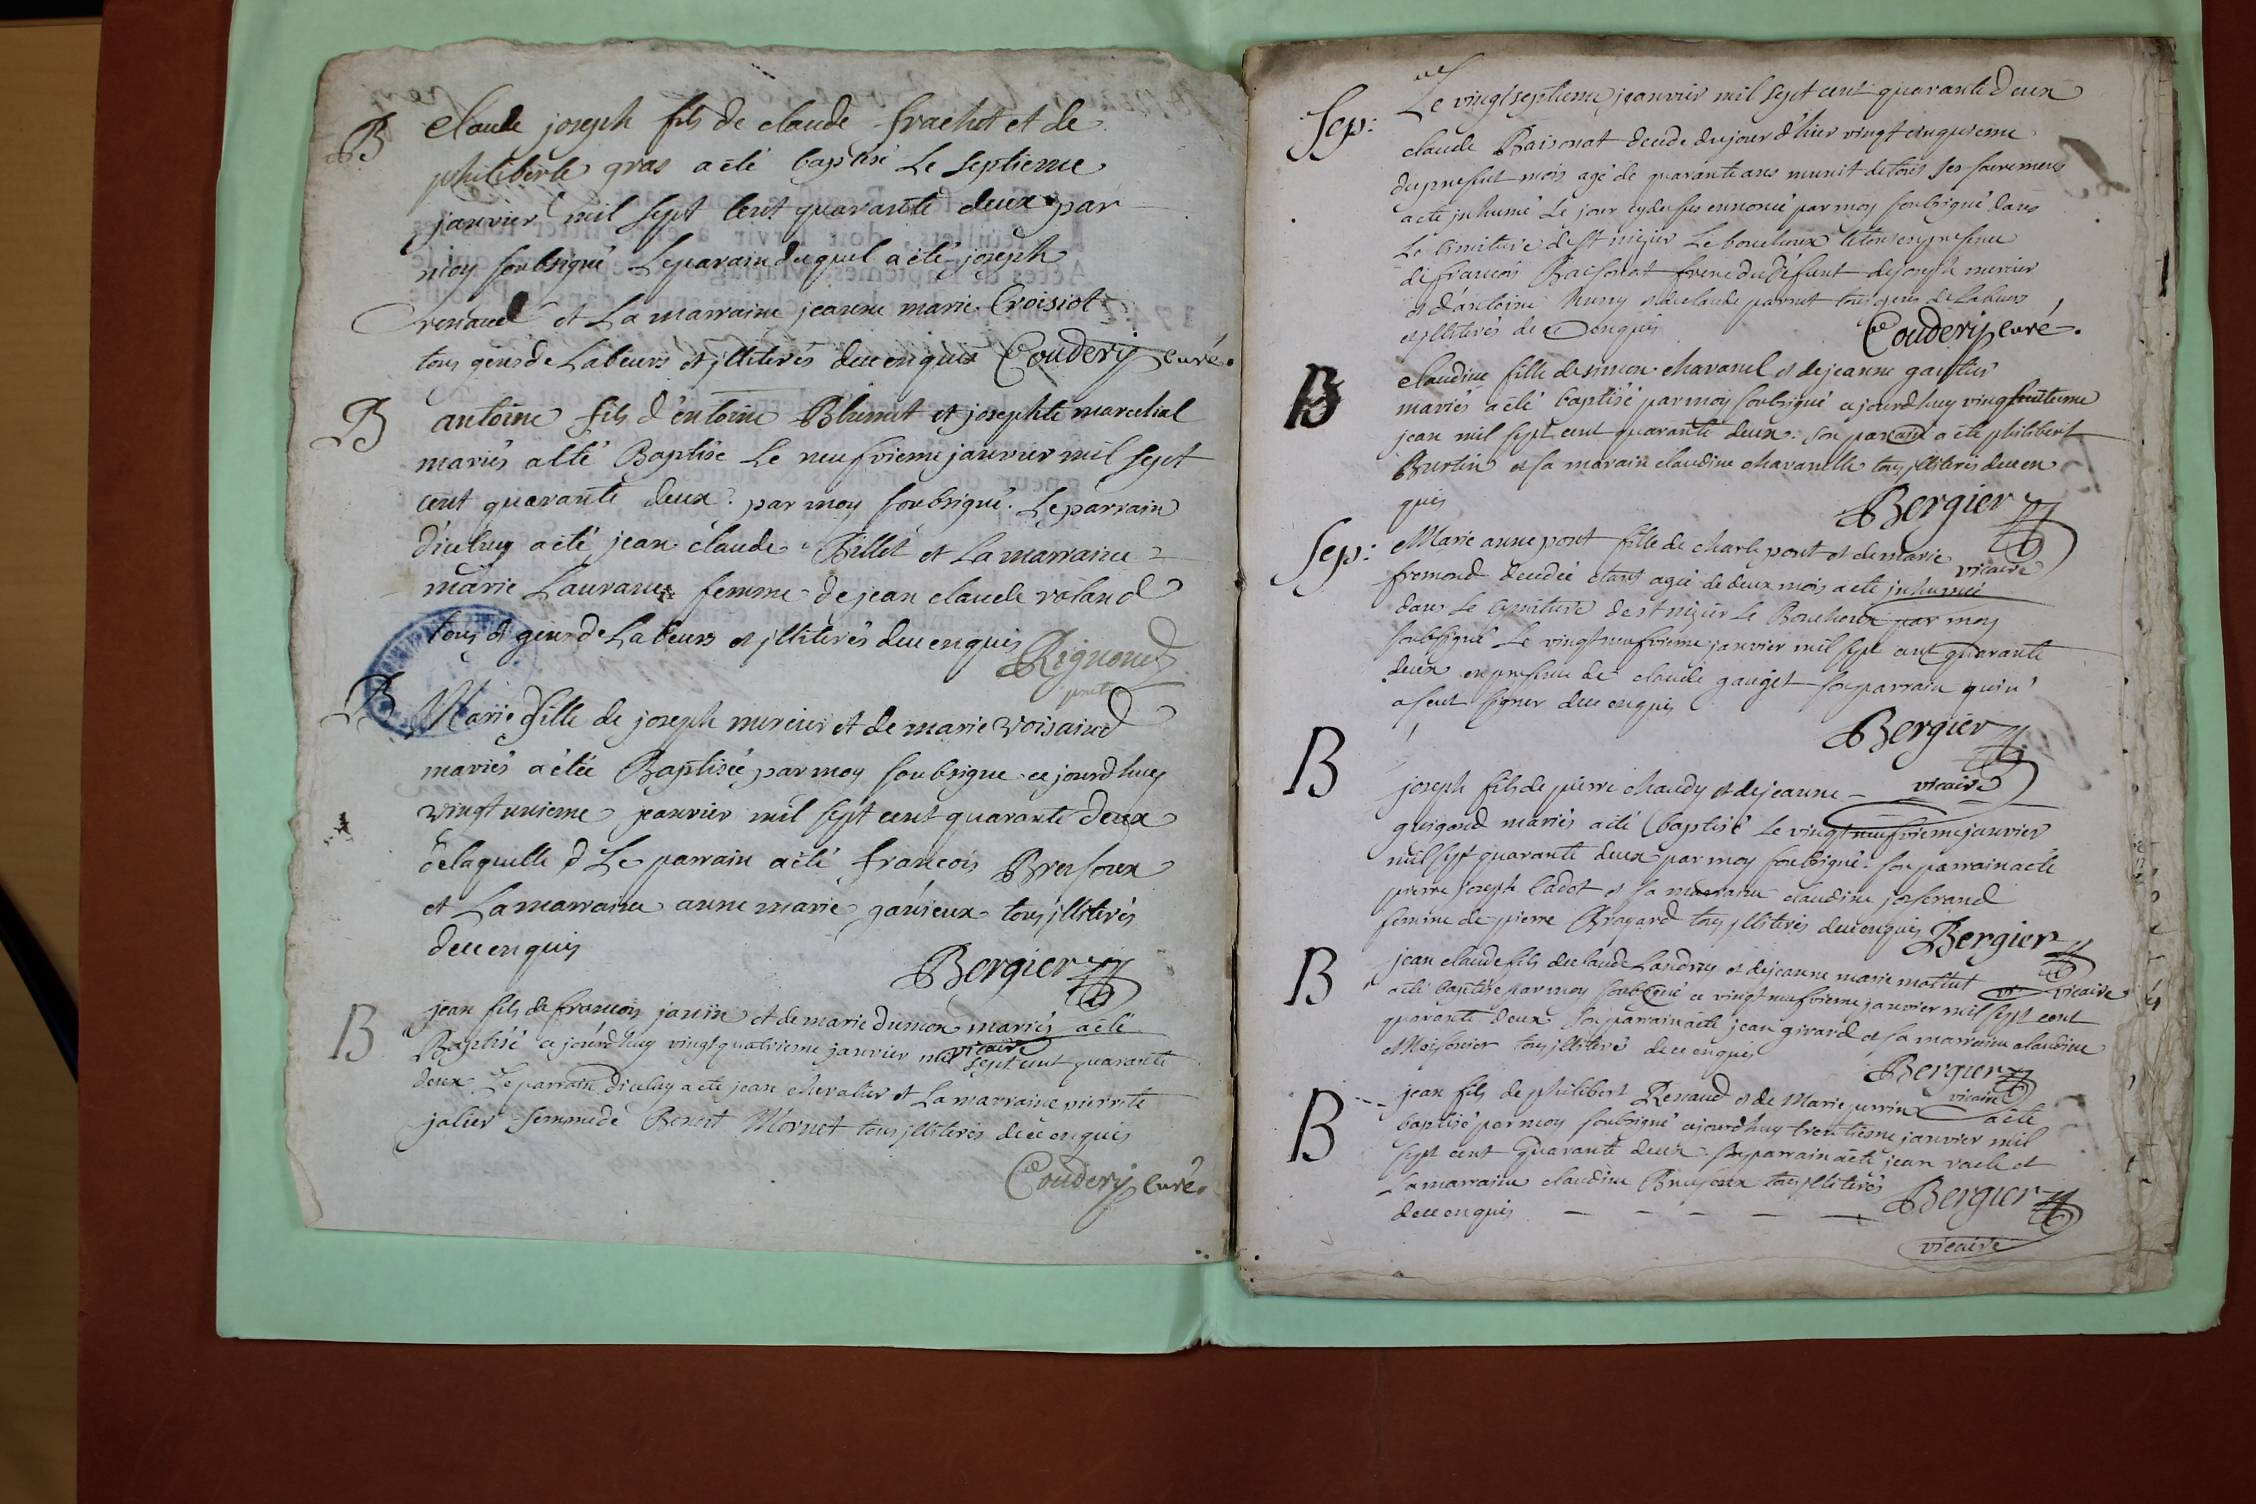 B
Claude joseph fils de claude frachet et de
philiberte gras a été baptisé Le septieme
janvier mil sept cent quarante deux par
moy soubsigné Leparain duquel a été joseph
renaud et La marraine jeanne marie Croisiot
tous gens de Labeurs et jlliterés deuenquis Couderij curé.
B
antoine fils d'entoine Blumet et josephte marechal
mariés a été Baptisé Le neufvieme janvier mil sept
cent quarante deux. par moy soubsigné. Le parrain
d'iceluy a été jean claude Billet et La marraine
marie Lauran femme de jean claude roland
tous gens de Labeurs et jlliterés deuenquis Rignoud
B
Marie fille de joseph mercier et de marie voisaind
mariés a étée Baptisée par moy soubsigne cejourdhuy
vingt unieme jeanvier mil sept cent quarante deux
delaquelle Le parrain a été francois Bresoux
et La marraine anne marie ganieux tous jlliterés
deuenquis
Bergier
vicaire
B
jean fils de francois janin et de marie dumon mariés a été
Baptisé cejourdhuy vingtquatrieme janvier mil sept cent quarante
deux Leparrain diceluy a été jean chevalier et La marraine pierrete
jalier femme de Benoit Mornet tous jlliterés deuenquis
Couderij curé.
Sep:
Le vingtseptieme jeanvier mil sept cent quarante deux
claude Raisonat decede dujour d'hier vingt cinquieme
dupresent mois agé de quarante ans munit de tous ses sacremens
a eté jnhumé Le jour cydessus ennoncé par moy soubsigné dans
Le cimitiere de st nizier Le bouchoux letout en presence
de francois Raisonat frere du défunt de joseph mercier
et d'antoine Nurry et de claude parnet tous gens de Labeurs
et jlliterés de ce enquis
Couderij curé.
B
claudine fille de simon chavanel et de jeanne gautier
mariés a été baptisé par moy soubsigné cejourdhuy vingthuitieme
jean mil sept cent quarante deux. son parain a été philibert
Burtin et sa marain claudine chavanelle tous jlliterés deuen
quis
Bergier
vicaire
Sep:
Marie anne pont fille de charle pont et de marie
fremond decedée etant agée de deux mois a eté jnhumée
dans Le cymitiere de st nizier Le Bouchoux par moy
soubsigné Le vingtneufvieme janvier mil sept cent quarante
deux en presence de claude gauget son parrain qui n'
a seut signer deuenquis
Bergier
vicaire
B
joseph fils de pierre chaudy et de jeanne
guigond mariés a été baptisé Le vingtneufvieme janvier
mil sept quarante deux par moy soubsigné. son parrain a été
pierre joseph Cadot et sa marraine claudine josserand
femme de pierre Bragard tous jlliterés deuenquis Bergier
vicaire
B
jean claude fils de claude Landrey et de jeanne marie mottet
a été baptisé par moy soubsigné ce vingtneufvieme janvier mil sept cent
quarante deux son parrain a été jean girard et sa marraine claudine
Moissonier tous jlliteré deuenquis
Bergier
vicaire
B
jean fils de philibert Renaud et de Marie perrin a été
baptisé par moy soubsigné cejourdhuy trentieme janvier mil
sept cent quarante deux son parrain a été jean vaele et
sa marraine claudine Bresoux tous jlliterés
deuenquis
Bergier
vicaire